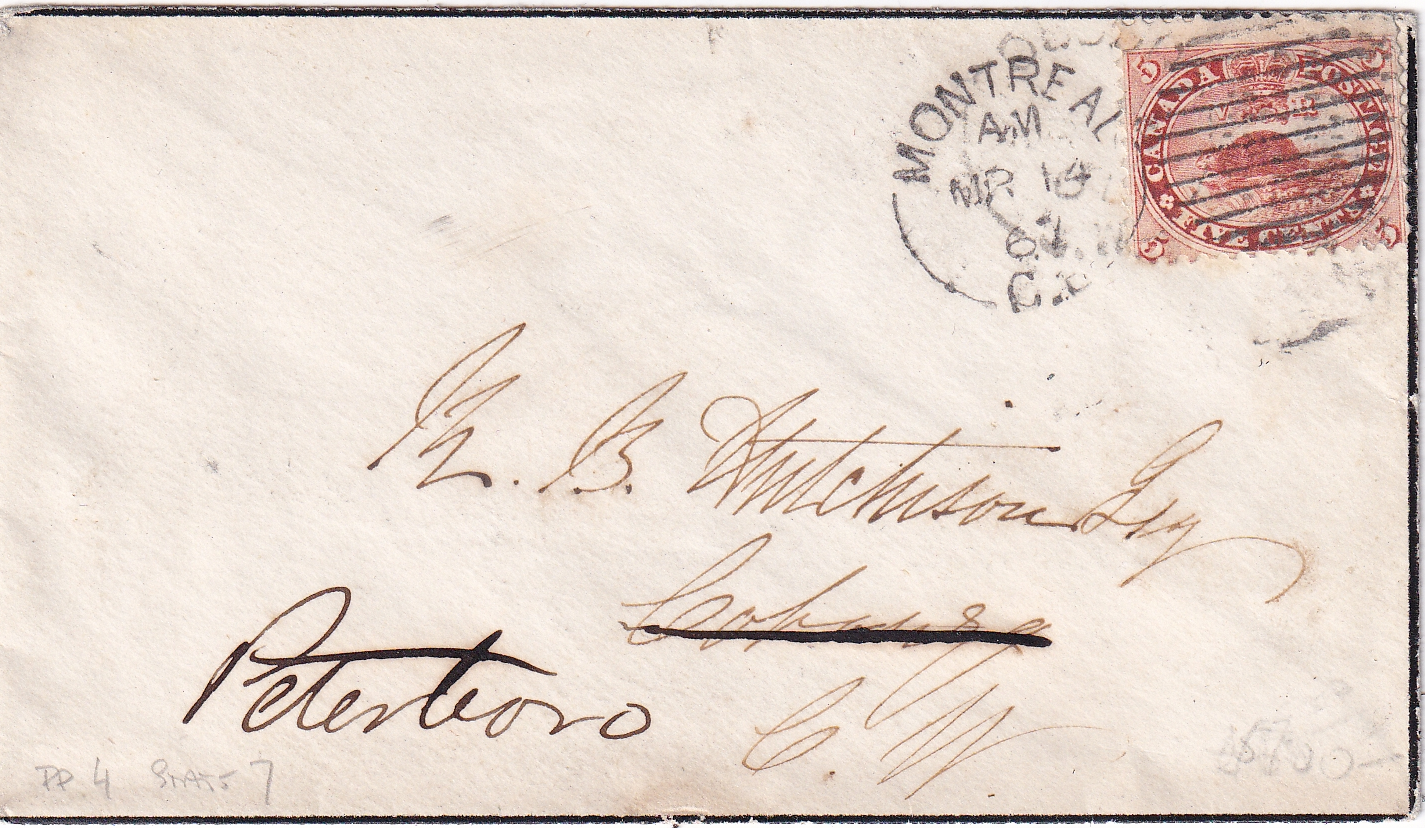 MONTREAL
AM
MR 16
C.E
5 5
CANADA POSTAGE
FIVE CENTS
5 5
M. B. Hutchison Esq
Cobourg
Peterboro
C. W.
PP. 4 STATE 7